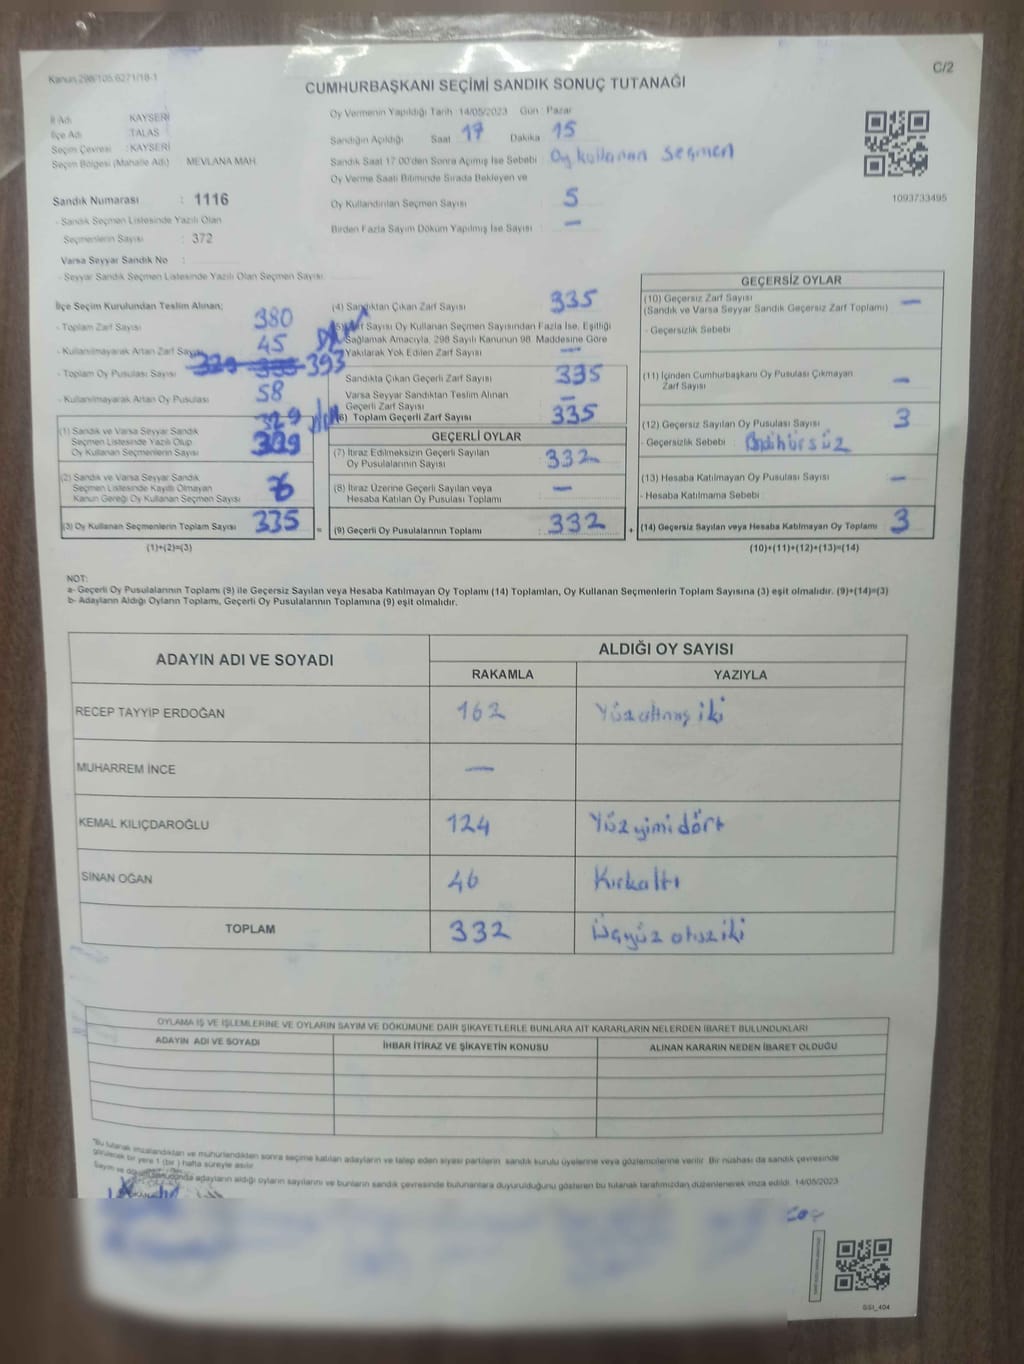 Kanun 298/105,6271/18-1
C/2
CUMHURBAŞKANI SEÇİMİ SANDIK SONUÇ TUTANAĞI
İl Adı : KAYSERİ
İlçe Adı : TALAS
Seçim Çevresi : KAYSERİ
Seçim Bölgesi (Mahalle Adı) MEVLANA MAH.
Sandık Numarası : 1116
- Sandık Seçmen Listesinde Yazılı Olan
Seçmenlerin Sayısı : 372
Varsa Seyyar Sandık No :
- Seyyar Sandık Seçmen Listesinde Yazılı Olan Seçmen Sayısı:
Oy Vermenin Yapıldığı Tarih :14/05/2023 Gün : Pazar
Sandığın Açıldığı Saat 17 Dakika 15
Sandık Saat 17.00'den Sonra Açımış İse Sebebi : Oy kullanan seçmen
Oy Verme Saati Bitiminde Sırada Bekleyen ve
Oy Kullandırılan Seçmen Sayısı : 5
Birden Fazla Sayım Döküm Yapılmış İse Sayısı : —
1093733495
İlçe Seçim Kurulundan Teslim Alınan;
- Toplam Zarf Sayısı : 380
- Kullanılmayarak Artan Zarf Sayısı 45
- Toplam Oy Pusulası Sayısı 393
- Kullanılmayarak Artan Oy Pusulası 58
329
(1) Sandık ve Varsa Seyyar Sandık
Seçmen Listesinde Yazılı Olup
Oy Kullanan Seçmenlerin Sayısı
(2) Sandık ve Varsa Seyyar Sandık
Seçmen Listesinde Kayıtlı Olmayan
Kanun Gereği Oy Kullanan Seçmen Sayısı : 6
(3) Oy Kullanan Seçmenlerin Toplam Sayısı 335
(1)+(2)=(3)
(4) Sandıktan Çıkan Zarf Sayısı : 335
Zarf Sayısı Oy Kullanan Seçmen Sayısından Fazla İse, Eşitliği
Sağlamak Amacıyla, 298 Sayılı Kanunun 98. Maddesine Göre
Yakılarak Yok Edilen Zarf Sayısı : —
Sandıkta Çıkan Geçerli Zarf Sayısı : 335
Varsa Seyyar Sandıktan Teslim Alınan
Geçerli Zarf Sayısı : —
(6) Toplam Geçerli Zarf Sayısı : 335
GEÇERLİ OYLAR
(7) İtiraz Edilmeksizin Geçerli Sayılan
Oy Pusulalarının Sayısı : 332
(8) İtiraz Üzerine Geçerli Sayılan veya
Hesaba Katılan Oy Pusulası Toplamı : —
= (9) Geçerli Oy Pusulalarının Toplamı : 332
GEÇERSİZ OYLAR
(10) Geçersiz Zarf Sayısı
(Sandık ve Varsa Seyyar Sandık Geçersiz Zarf Toplamı) —
- Geçersizlik Sebebi
(11) İçinden Cumhurbaşkanı Oy Pusulası Çıkmayan
Zarf Sayısı : —
(12) Geçersiz Sayılan Oy Pusulası Sayısı : 3
- Geçersizlik Sebebi :
(13) Hesaba Katılmayan Oy Pusulası Sayısı : —
- Hesaba Katılmama Sebebi :
+ (14) Geçersiz Sayılan veya Hesaba Katılmayan Oy Toplamı : 3
(10)+(11)+(12)+(13)=(14)
NOT:
a- Geçerli Oy Pusulalarının Toplamı (9) ile Geçersiz Sayılan veya Hesaba Katılmayan Oy Toplamı (14) Toplamları, Oy Kullanan Seçmenlerin Toplam Sayısına (3) eşit olmalıdır. (9)+(14)=(3)
b- Adayların Aldığı Oyların Toplamı, Geçerli Oy Pusulalarının Toplamına (9) eşit olmalıdır.
ADAYIN ADI VE SOYADI ALDIĞI OY SAYISI
RAKAMLA YAZIYLA
RECEP TAYYİP ERDOĞAN 162 Yüzaltmış iki
MUHARREM İNCE —
KEMAL KILIÇDAROĞLU 124 Yüzyimi dört
SİNAN OĞAN 46 Kırkaltı
TOPLAM 332 Üçyüz otuz iki
OYLAMA İŞ VE İŞLEMLERİNE VE OYLARIN SAYIM VE DÖKÜMÜNE DAİR ŞİKAYETLERLE BUNLARA AİT KARARLARIN NELERDEN İBARET BULUNDUKLARI
ADAYIN ADI VE SOYADI İHBAR İTİRAZ VE ŞİKAYETİN KONUSU ALINAN KARARIN NEDEN İBARET OLDUĞU
"Bu tutanak imzalandıktan ve mühürlendikten sonra seçime katılan adayların ve talep eden siyasi partilerin sandık kurulu üyelerine veya gözlemcilerine verilir. Bir nüshası da sandık çevresinde
görülecek bir yere 1 (bir) hafta süreyle asılır.
Sayım ve döküm sonucunda adayların aldığı oyların sayılarını ve bunların sandık çevresinde bulunanlara duyurulduğunu gösteren bu tutanak tarafımızdan düzenlenerek imza edildi. 14/05/2023